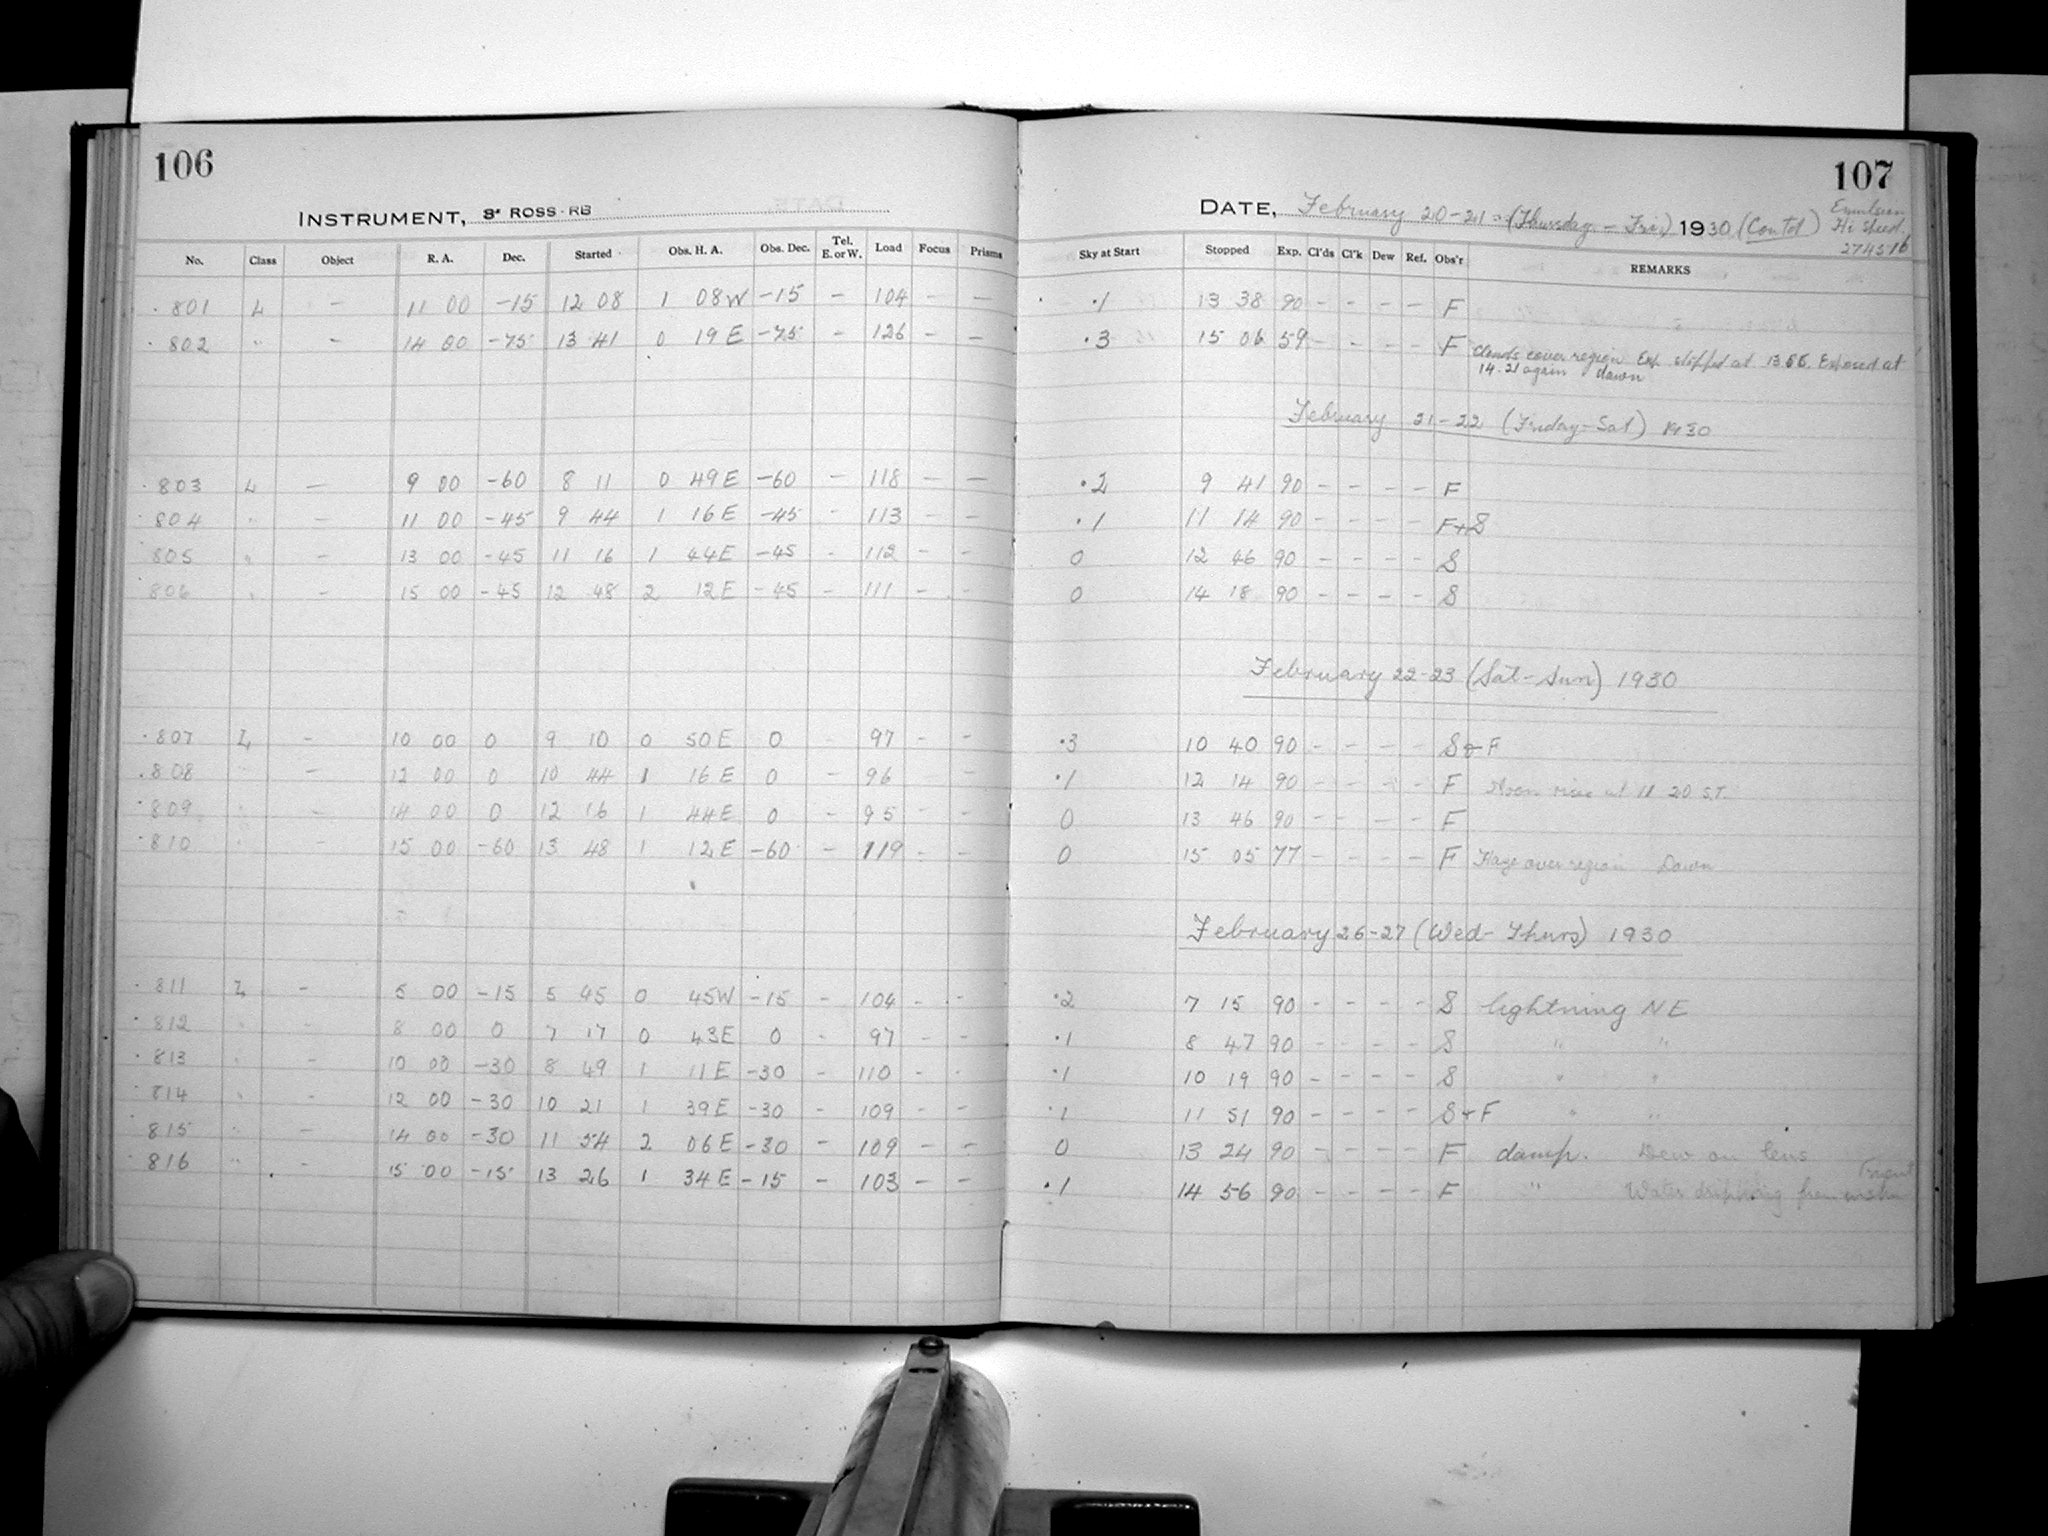 106
INSTRUMENT, 3" ROSS-RB
No. Class Object R. A. Dec. Started Obs. H. A. Obs. Dec. Tel. E. or W. Load Focus Prisms
801 L – 11 00 –15 12 08 1 08 W –15 – 104 – –
802 " – 14 00 –75 13 41 0 19 E –75 – 126 – –
803 L – 9 00 –60 8 11 0 49 E –60 – 118 – –
804 " – 11 00 –45 9 44 1 16 E –45 – 113 – –
805 " – 13 00 –45 11 16 1 44 E –45 – 112 – –
806 " – 15 00 –45 12 48 2 12 E –45 – 111 – –
807 L – 10 00 0 9 10 0 50 E 0 – 97 – –
808 " – 12 00 0 10 44 1 16 E 0 – 96 –
809 " – 14 00 0 12 16 1 44 E 0 – 95 – –
810 " – 15 00 –60 13 48 1 12 E –60 – 119 – –
811 L – 5 00 –15 5 45 0 45 W –15 – 104 – –
812 " 8 00 0 7 17 0 43 E 0 – 97 – –
813 " – 10 00 –30 8 49 1 11 E –30 – 110 – –
814 " – 12 00 –30 10 21 1 39 E –30 – 109 – –
815 " – 14 00 –30 11 54 2 06 E –30 – 109 – –
816 " – 15 00 –15 13 26 1 34 E –15 – 103 – –
107
DATE, February 20–21 – (Thursday – Fri) 1930 (Contd)
Emulsion
Hi Speed
274576
Sky at Start Stopped Exp. Cl'ds Cl'k Dew Ref. Obs'r REMARKS
.1 13 38 90 – – – – F
.3 15 06 59 – – – – F Clouds cover region Exp. stopped at Exposed at
14.21 again dawn
February 21–22 (Friday–Sat) 1930
.2 9 41 90 – – – – F
.1 11 14 90 – – – – F+S
0 12 46 90 – – – – S
0 14 18 90 – – – – S
February 22–23 (Sat–Sun) 1930
.3 10 40 90 – – – – S+F
.1 12 14 90 – – – – F Moon rise at 11 20 S.T.
0 13 46 90 – – – – F
0 15 05 77 – – – – F Haze over region Dawn
February 26–27 (Wed–Thurs) 1930
.2 7 15 90 – – – – S lightning NE
.1 8 47 90 – – – – S " "
.1 10 19 90 – – – – S " "
.1 11 51 90 – – – – S+F " "
0 13 24 90 – – – – F damp. Dew on lens
.1 14 56 90 – – – – F " Water dripping from